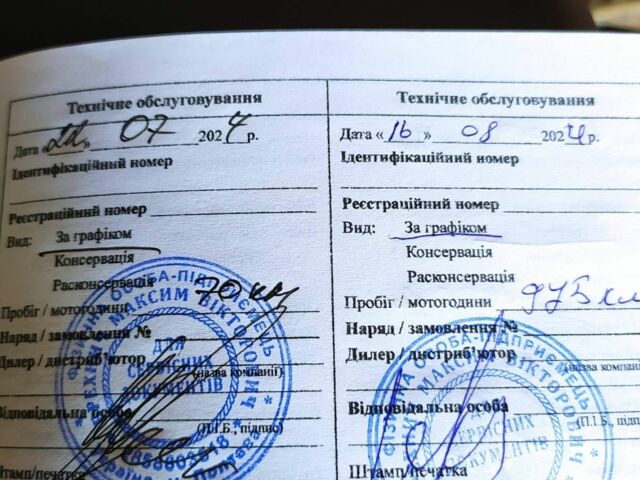 Технічне обслуговування
Дата «22» 07 2024 р.
Ідентифікаційний номер
Реєстраційний номер
Вид: За графіком
Консервація
Расконсервація
Пробіг / мотогодини 70 км
Наряд / замовлення №
Дилер / дистриб’ютор
(назва компанії)
Відповідальна особа
(П.І.Б., підпис)
Штамп/печатка
ФІЗИЧНА ОСОБА-ПІДПРИЄМЕЦЬ
МАКСИМ ВІКТОРОВИЧ
ДЛЯ
СЕРВІСНИХ
ДОКУМЕНТІВ
Україна, м. Полтава
Технічне обслуговування
Дата «16» 08 2024 р.
Ідентифікаційний номер
Реєстраційний номер
Вид: За графіком
Консервація
Расконсервація
Пробіг / мотогодини 975 км
Наряд / замовлення №
Дилер / дистриб’ютор
(назва компанії)
Відповідальна особа
(П.І.Б., підпис)
Штамп/печатка
ФІЗИЧНА ОСОБА-ПІДПРИЄМЕЦЬ
МАКСИМ ВІКТОРОВИЧ
СЕРВІСНИХ
ДОКУМЕНТІВ